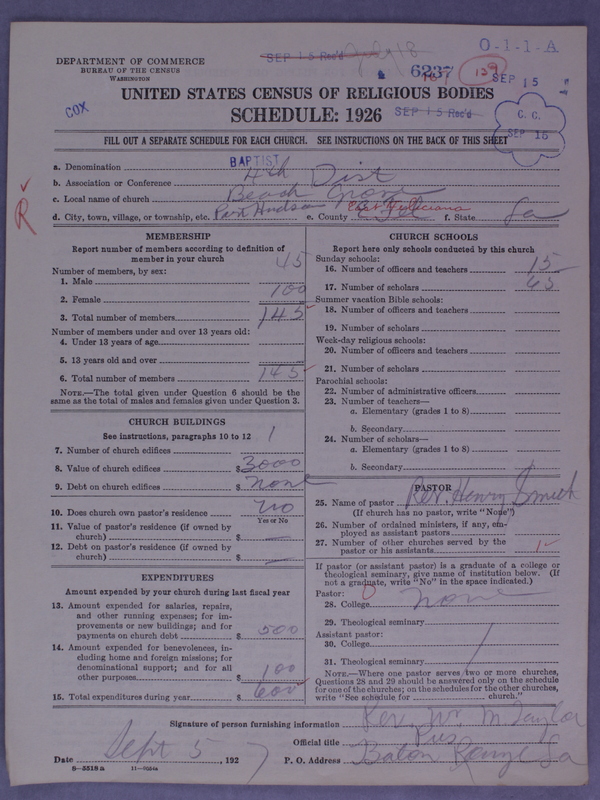 SEP 15 Rec'd
O-1-1-A
DEPARTMENT OF COMMERCE
BUREAU OF THE CENSUS
WASHINGTON
6237
139
SEP 15
UNITED STATES CENSUS OF RELIGIOUS BODIES
COX
SCHEDULE: 1926
SEP 15 Rec'd
C. C.
SEP 15
FILL OUT A SEPARATE SCHEDULE FOR EACH CHURCH. SEE INSTRUCTIONS ON THE BACK OF THIS SHEET
R
a. Denomination BAPTIST
b. Association or Conference 4th Dist
c. Local name of church Beach Grove
d. City, town, village, or township, etc. Port Hudson e. County East Feliciana f. State La
MEMBERSHIP
Report number of members according to definition of
member in your church
Number of members, by sex:
1. Male 45
2. Female 100
3. Total number of members 145
Number of members under and over 13 years old:
4. Under 13 years of age
5. 13 years old and over
6. Total number of members 145
NOTE.—The total given under Question 6 should be the
same as the total of males and females given under Question 3.
CHURCH BUILDINGS
See instructions, paragraphs 10 to 12
7. Number of church edifices 1
8. Value of church edifices $3000
9. Debt on church edifices $none
10. Does church own pastor's residence no
Yes or No
11. Value of pastor's residence (if owned by
church) $ —
12. Debt on pastor's residence (if owned by
church) $ —
EXPENDITURES
Amount expended by your church during last fiscal year
13. Amount expended for salaries, repairs,
and other running expenses; for im-
provements or new buildings; and for
payments on church debt $ 500
14. Amount expended for benevolences, in-
cluding home and foreign missions; for
denominational support; and for all
other purposes $ 100
15. Total expenditures during year $ 600
CHURCH SCHOOLS
Report here only schools conducted by this church
Sunday schools:
16. Number of officers and teachers 15
17. Number of scholars 65
Summer vacation Bible schools:
18. Number of officers and teachers
19. Number of scholars
Week-day religious schools:
20. Number of officers and teachers
21. Number of scholars
Parochial schools:
22. Number of administrative officers
23. Number of teachers—
a. Elementary (grades 1 to 8)
b. Secondary
24. Number of scholars—
a. Elementary (grades 1 to 8)
b. Secondary
PASTOR
25. Name of pastor Rev. Henry Smith
(If church has no pastor, write "None")
26. Number of ordained ministers, if any, em-
ployed as assistant pastors
27. Number of other churches served by the
pastor or his assistants 1
If pastor (or assistant pastor) is a graduate of a college or
theological seminary, give name of institution below. (If
not a graduate, write "No" in the space indicated.)
Pastor:
28. College none
29. Theological seminary
Assistant pastor:
30. College
31. Theological seminary
NOTE.—Where one pastor serves two or more churches,
Questions 28 and 29 should be answered only on the schedule
for one of the churches; on the schedules for the other churches,
write "See schedule for church."
Signature of person furnishing information Rev. W. M. Taylor
Official title Pres
Date Sept 5, 1927 P. O. Address Baton Rouge La
8-5518 a 11-9554a